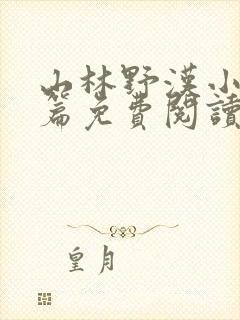 山林野漢小
篇免費閱讀
皇月